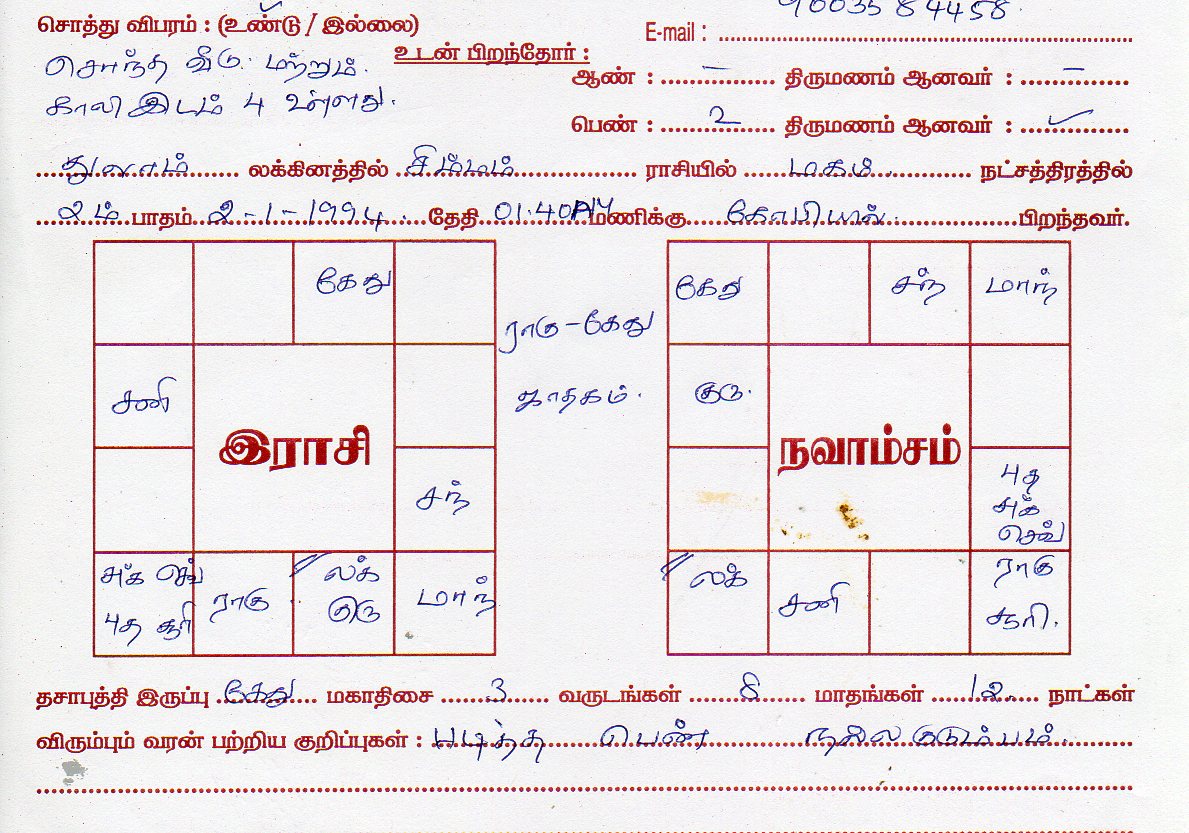 9003584458.
சொத்து விபரம் : (உண்டு / இல்லை) E-mail :
சொந்த வீடு மற்றும் உடன் பிறந்தோர் :
ஆண் : – திருமணம் ஆனவர் : –
காலி இடம் 4 உள்ளது.
பெண் : 2 திருமணம் ஆனவர் : ✓
துலாம் லக்கினத்தில் சிம்மம் ராசியில் மகம் நட்சத்திரத்தில்
2ம் பாதம் 2-1-1994 தேதி 01.40AM மணிக்கு கோபியில் பிறந்தவர்.
கேது
சனி
இராசி
சந்
சுக் செவ்
புத சூரி
ராகு
லக்
குரு
மாந்
ராகு – கேது
ஜாதகம்.
கேது சந் மாந்
குரு.
நவாம்சம்
புத
சுக்
செவ்
லக்
சனி
ராகு
சூரி.
தசாபுத்தி இருப்பு கேது மகாதிசை 3 வருடங்கள் 8 மாதங்கள் 12 நாட்கள்
விரும்பும் வரன் பற்றிய குறிப்புகள் : படித்த பெண் நல்ல குடும்பம்.